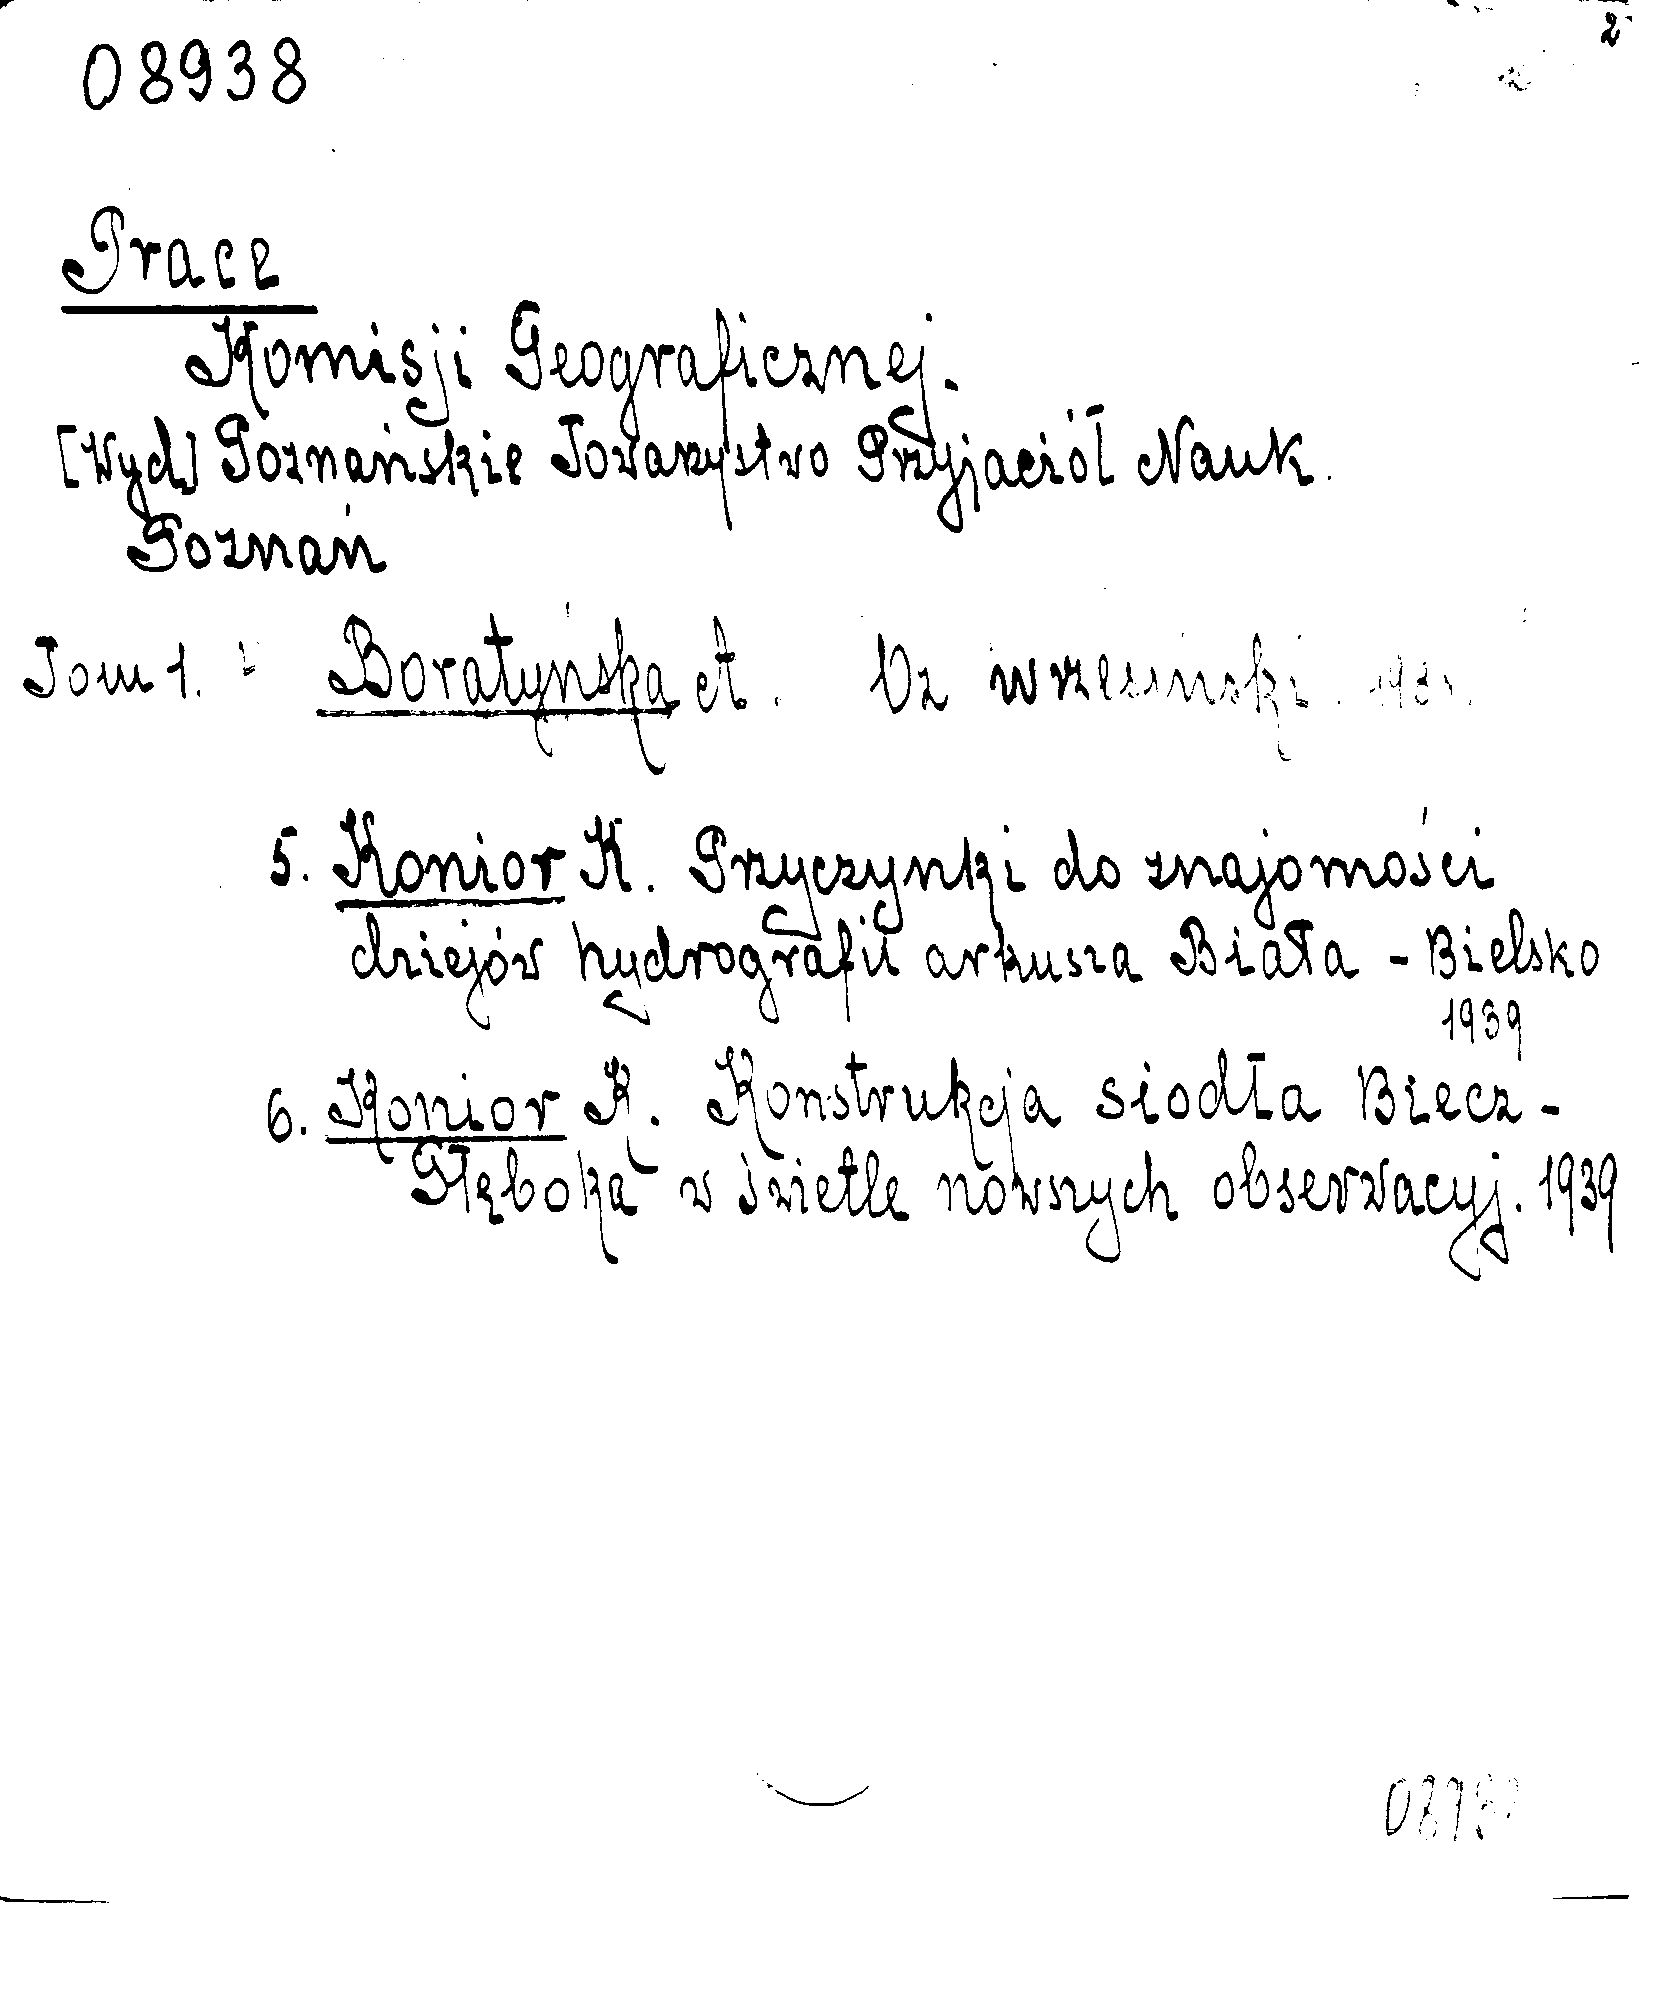 2
08938
Prace
Komisji Geograficznej.
[Wyd] Poznańskie Towarzystwo Przyjaciół Nauk.
Poznań
Tom 1. Boratyńska A. Oz wrzesiński.
5. Konior K. Przyczynki do znajomości
dziejów hydrografii arkusza Biała - Bielsko
1939
6. Konior K. Konstrukcja siodła Biecz -
Głęboka w świetle nowszych obserwacyj. 1939